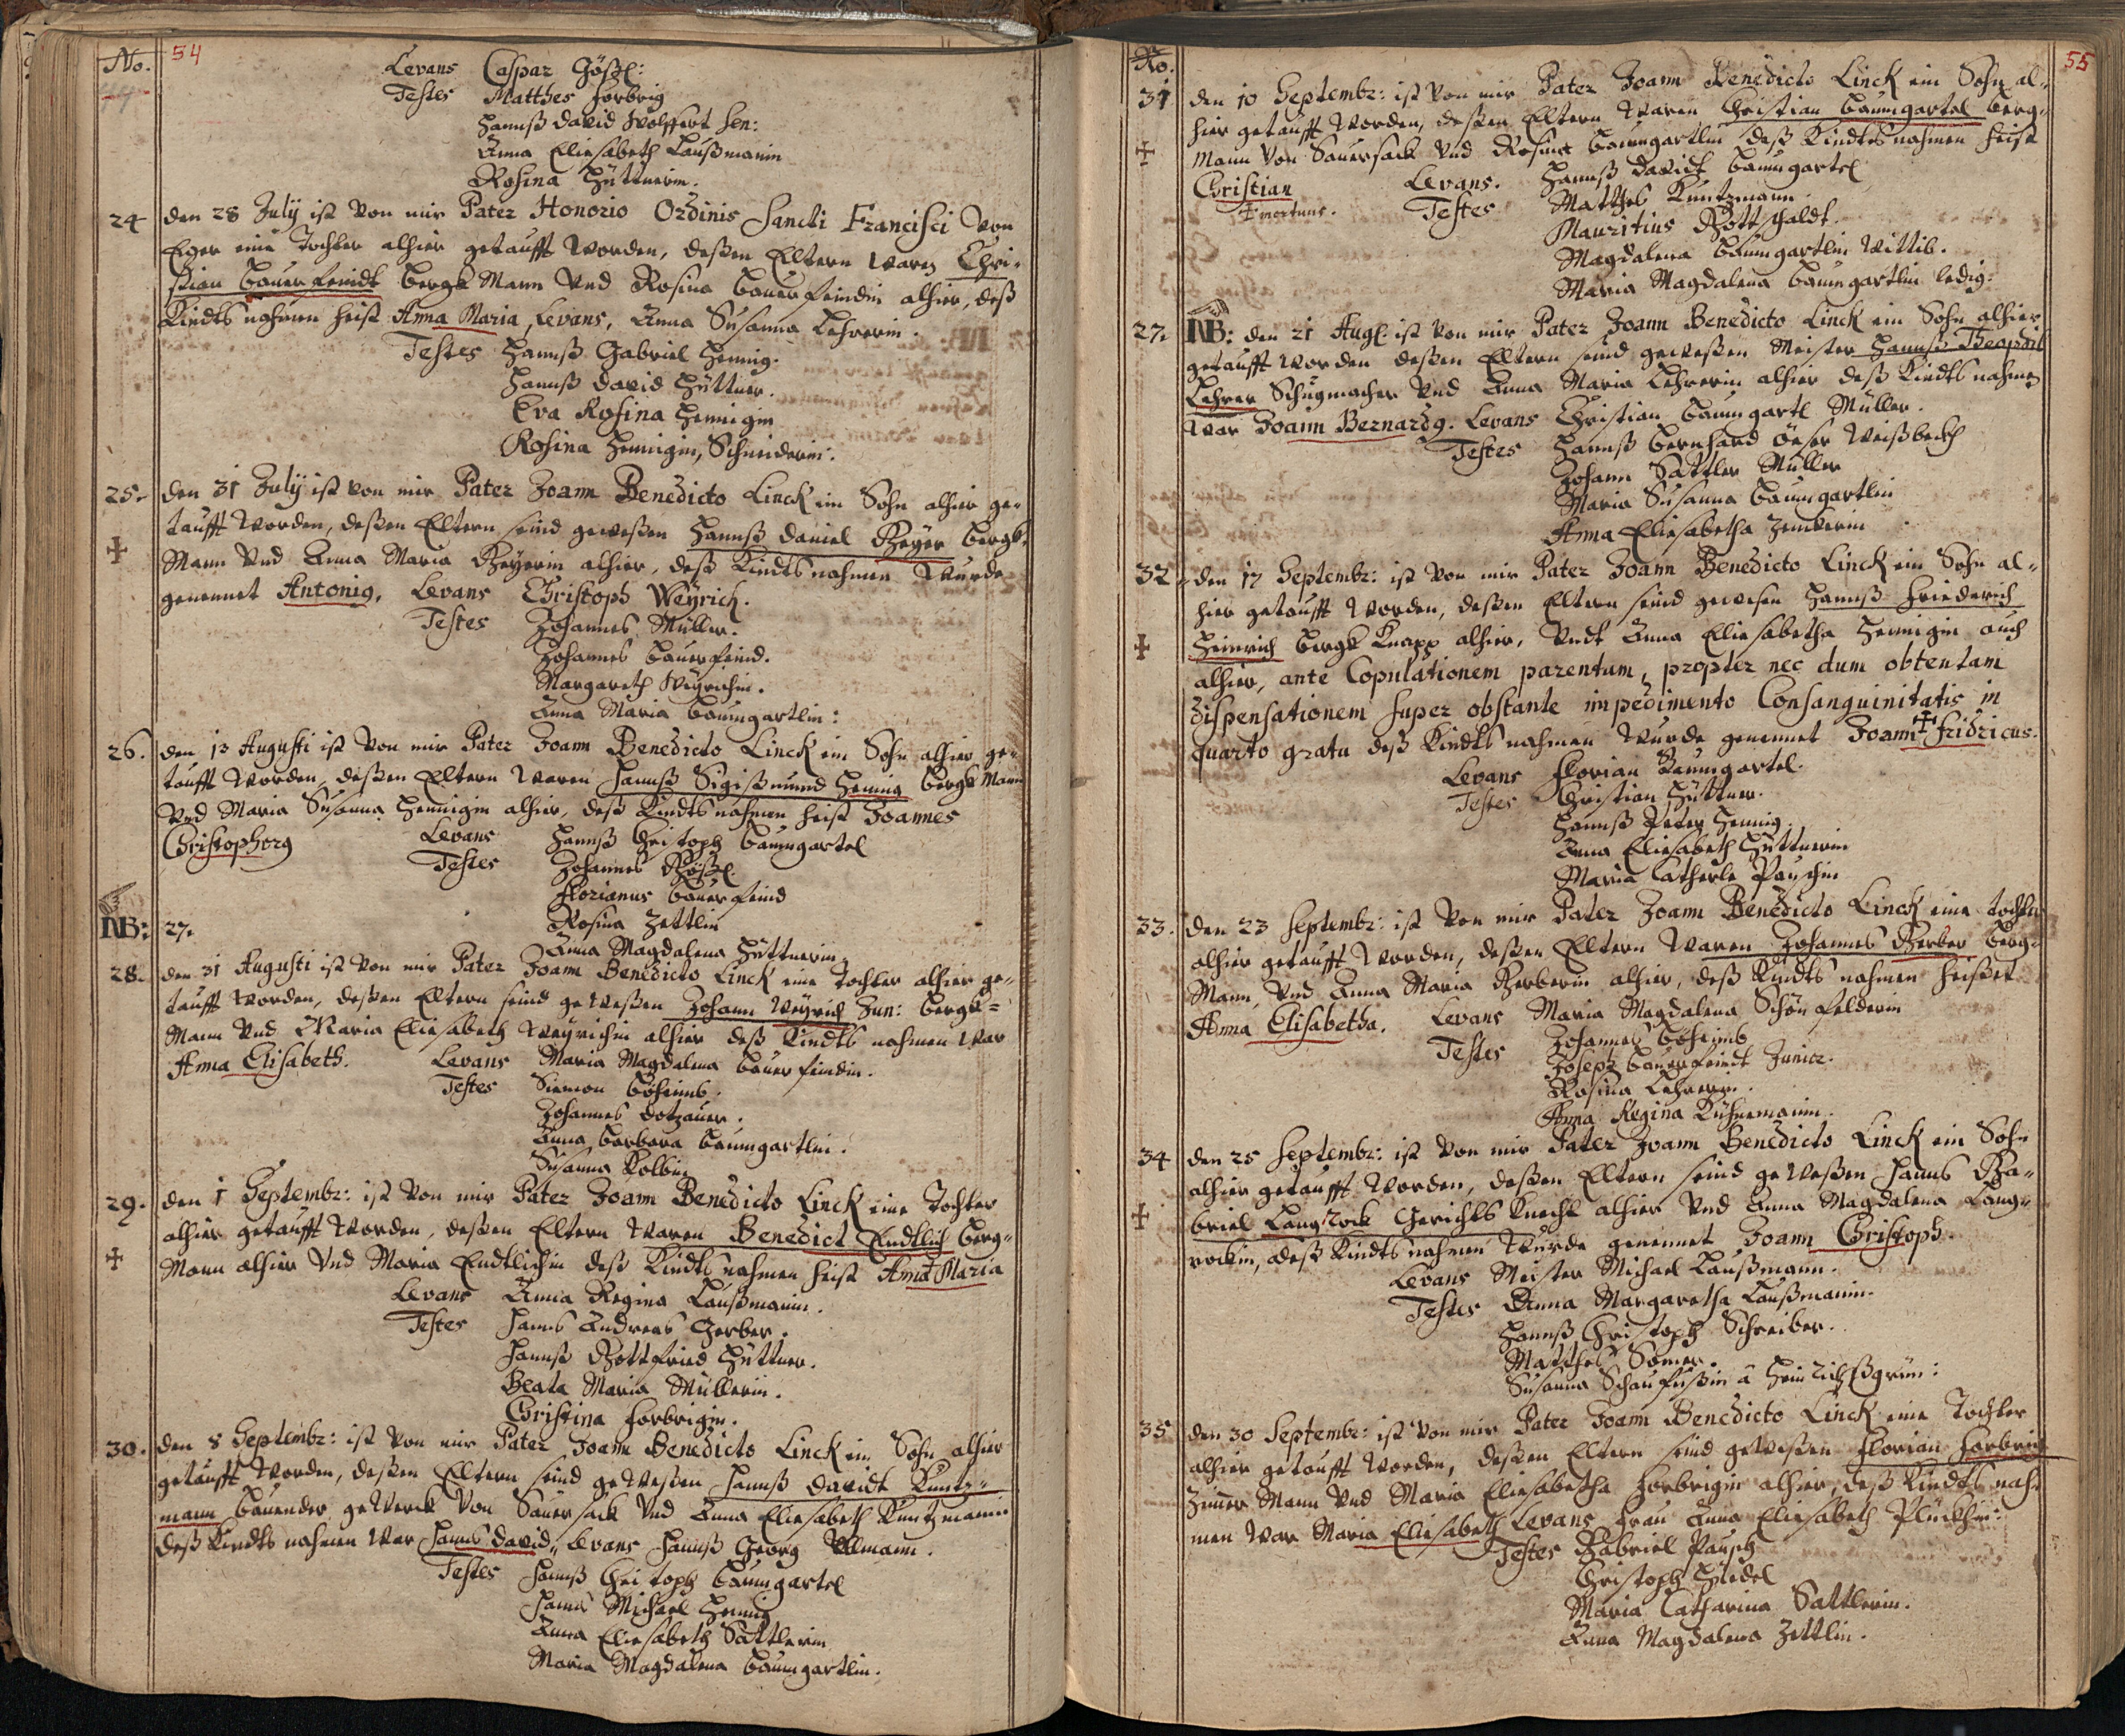 No. 54
Levans Caspar Gößl:
Testes Matthes Forbrig
Hannß David Wolffert Sen:
Anna Eliesabeth Laußmanin
Rosina Hüttnerin.
24 den 28 July ist von mir Pater Honorio Ordinis Sancti Francisci von
Eger eine Tochter alhier getaufft worden, deßen Eltern waren Chri-
stian Bauerfeindt Bergk Mann und Rosina Bauerfeindin alhier, deß
Kindts nahmen heist Anna Maria, Levans, Anna Susanna Lehrerin.
Testes Hannß Gabriel Hennig.
Hannß David Hüttner.
Eva Rosina Hennigin
Rosina Hennigin, Schneiderin.
25. den 31 July ist von mir Pater Joann Benedicto Linck ein Sohn alhier ge-
taufft worden, deßen Eltern seind geweßen Hannß Daniel Geyer Bergk-
Mann und Anna Maria Geyerin alhier, deß Kindts nahmen wurde
genennet Antonig, Levans Christoph Weyrich.
Testes Johannes Müller.
Johannes Bauerfeind.
Margareth Weyrichin.
Anna Maria Baumgartlin:
26. den 13 Augusti ist von mir Pater Joann Benedicto Linck ein Sohn alhier ge-
taufft worden, deßen Eltern waren Hannß Sigißmund Hennig Bergk Mann
und Maria Susanna Hennigin alhier, deß Kindts nahmen heist Joannes
Christophorg Levans Hannß Christoph Baumgartel
Testes Johannes Gößl.
Florianus Bauerfeind
Rosina Zettlin
Anna Magdalena Hüttnerin.
NB: 27.
28. den 31 Augusti ist von mir Pater Joann Benedicto Linck eine Tochter alhier ge-
taufft worden, deßen Eltern seind geweßen Johann Weyrich Jun: Bergk-
Mann und Maria Eliesabeth Weyrichin alhier deß Kindts nahmen war
Anna Elisabeth. Levans Maria Magdalena Bauerfeindin.
Testes Simon Böheimb.
Johannes Dotzauer.
Anna Barbara Baumgartlin.
Susanna Kolbin
29. den 1 Septembr: ist von mir Pater Joann Benedicto Linck eine Tochter
alhier getaufft worden, deßen Eltern waren Benedict Endtlich Berg-
Mann alhier und Maria Endtlichin deß Kindts nahmen heist Anna Maria
Levans Anna Regina Laußmanin.
Testes Hannß Andreas Gerber.
Hannß Gottfried Hüttner.
Beata Maria Müllerin.
Christina Forbrigin.
30. den 8 Septembr: ist von mir Pater Joann Benedicto Linck ein Sohn alhier
getaufft worden, deßen Eltern seind geweßen Hannß Davidt Kuntz-
mann bauender gewerck von Sauersack und Anna Eliesabeth Kuntzmanin
deß Kindts nahmen war Hannß David, Levans Hannß Georg Ullmann.
Testes Hannß Christoph Baumgartel
Hannß Michael Hennig
Anna Eliesabeth Sattlerin
Maria Magdalena Baumgartlin.
No. 55
31 den 10 Septembr: ist von mir Pater Joann Benedicto Linck ein Sohn al-
hier getaufft worden, deßen Eltern waren Christian Baumgartel Berg-
Mann von Sauersack und Rosina Baumgartlin deß Kindts nahmen heist
Christian Levans. Hannß Davidt Baumgartel
mortuus. Testes Matthes Kuntzmann
Mauritius Gottschaldt.
Magdalena Baumgartlin Wittib.
Maria Magdalena Baumgartlin ledig.
27. NB: den 21 Aug: ist von mir Pater Joann Benedicto Linck ein Sohn alhier
getaufft worden deßen Eltern seind geweßen Meister Hannß
Lehrer Schuhmacher und Anna Maria Lehrerin alhier deß Kindts nahmen
war Joann Bernardg. Levans Christian Baumgartl Müller.
Testes Hannß Bernhard Weißbeckh
Johann Sattler Müller
Maria Susanna Baumgartlin
Anna Eliesabetha Zenckerin
32. den 17 Septembr: ist von mir Pater Joann Benedicto Linck ein Sohn al-
hier getaufft worden, deßen Eltern seind gewesen Hannß Friederich
Heinrich Bergk Knapp alhier, undt Anna Eliesabetha Hennigin auch
alhier, ante Copulationem parentum, propter nec dum obtentam
Dispensationem super obstante impedimento Consanguinitatis in
quarto gratu deß Kindts nahmen wurde genennet Joann Fridricus.
Levans Florian Baumgartel.
Testes Christian Hüttner.
Hannß Peter Hennig.
Anna Eliesabeth Hüttnerin
Maria Catherle Pauschin
33. den 23 Septembr: ist von mir Pater Joann Benedicto Linck eine tochter
alhier getaufft worden, deßen Eltern waren Johannes Gerber Berg-
Mann, und Anna Maria Gerberin alhier, deß Kindts nahmen heißet
Anna Elisabetha. Levans Maria Magdalena Schönfelderin
Testes Johannes Böheimb
Joseph Bauerfeindt Junior.
Rosina Lehrerin.
Anna Regina Kuhnemanin.
34 den 25 Septembr: ist von mir Pater Joann Benedicto Linck ein Sohn
alhier getaufft worden, deßen Eltern seind geweßen Hannß Ga-
briel Langrock Gerichts Knecht alhier und Anna Magdalena Lang-
rockin, deß Kindts nahmen wurde genennet Joann Christoph.
Levans Meister Michael Laußmann.
Testes Anna Margaretha Laußmanin.
Hannß Christoph Schreiber.
Matthes Somer.
Susanna Schaufußin â Heinrichßgrün:
35 den 30 Septembr: ist von mir Pater Joann Benedicto Linck eine Tochter
alhier getaufft worden, deßen Eltern seind geweßen Florian Forbrig
Zimmer Mann und Maria Eliesabetha Forbrigin alhier, deß Kindts nah-
men war Maria Eliesabeth Levans Frau Anna Eliesabeth Plückhin:
Testes Gabriel Pausch
Christoph Hüedel
Maria Catharina Sattlerin.
Anna Magdalena Zettlin.